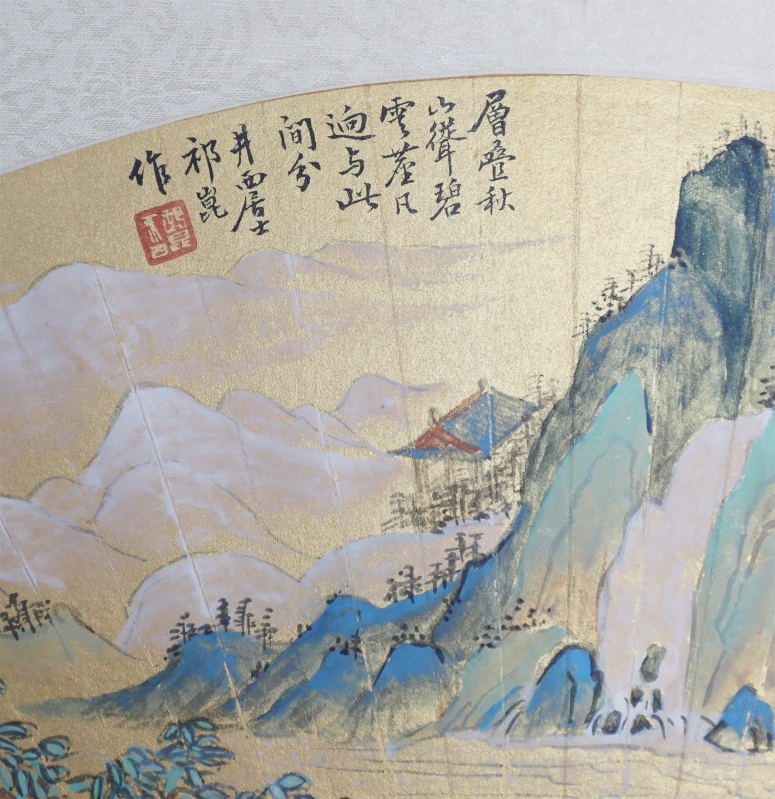 層疊秋
山聳碧
雲塵凡
迥与此
間分
井西居士
祁崑
作